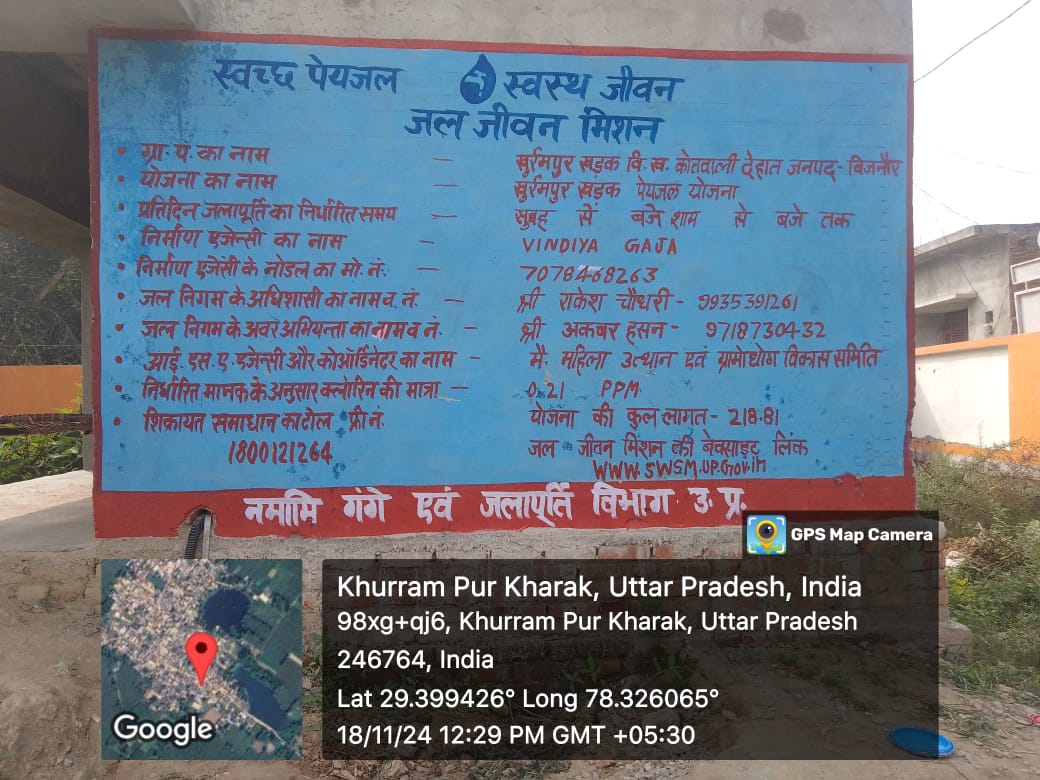 स्वच्छ पेयजल स्वस्थ जीवन
जल जीवन मिशन
• ग्रा. पं. का नाम — खुर्रमपुर खड़क वि. ख. कोतवाली देहात जनपद- बिजनौर
• योजना का नाम — खुर्रमपुर खड़क पेयजल योजना
• प्रतिदिन जलापूर्ति का निर्धारित समय — सुबह सें बजे शाम से बजे तक
• निर्माण एजेन्सी का नाम — VINDIYA GAJA
• निर्माण एजेंसी के नोडल का मो. नं. — 7078468263
• जल निगम के अधिशासी का नाम व. नं. — श्री राकेश चौधरी - 9935391261
• जल निगम के अवर अभियन्ता का नाम व नं. — श्री अकबर हसन - 9718730432
• आई. एस. ए. एजेन्सी और कोऑर्डिनेटर का नाम — मै. महिला उत्थान एवं ग्रामोद्योग विकास समिति
• निर्धारित मानक के अनुसार क्लोरिन की मात्रा — 0.21 PPM
• शिकायत समाधान का टोल फ्री नं. योजना की कुल लागत - 218.81
1800121264 जल जीवन मिशन की बेवसाइट लिंक
WWW.SWSM.UP.Gov.in
नमामि गंगे एवं जलापूर्ति विभाग उ. प्र.
GPS Map Camera
Khurram Pur Kharak, Uttar Pradesh, India
98xg+qj6, Khurram Pur Kharak, Uttar Pradesh
246764, India
Lat 29.399426° Long 78.326065°
18/11/24 12:29 PM GMT +05:30
Google